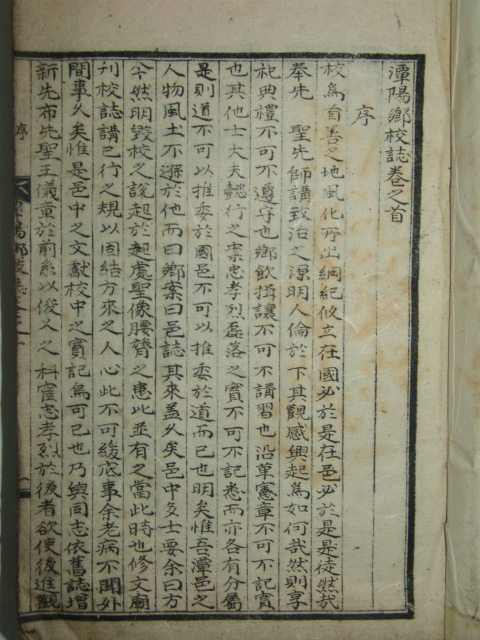 潭陽鄉校誌卷之首
序
校爲首善之地風化所出綱紀攸立在國必於是在邑必於是是徒然哉
奉先聖先師講致治之源明人倫於下其觀感興起爲如何哉然則享
祀典禮不可不遵守也鄉飮揖讓不可不講習也沿革憲章不可不記實
也其他士大夫懿行之案忠孝烈磊落之實不可不記悉而亦各有分屬
是則道不可以推委於國邑不可以推委於道而已也明矣惟吾潭邑之
人物風土不遜於他而曰鄉案曰邑誌其來盖久矣邑中多士要余曰方
今然明毀校之說起於起處聖像腰膂之患此並有之當此時也修文廟
刊校誌講已行之規以固結方來之人心此不可緩底事余老病不聞外
間事久矣惟是邑中之文獻校中之實記烏可已也乃與同志依舊誌增
新先布先聖王儀章於前系以俊乂之科宦忠孝烈於後者欲使後進觀
序